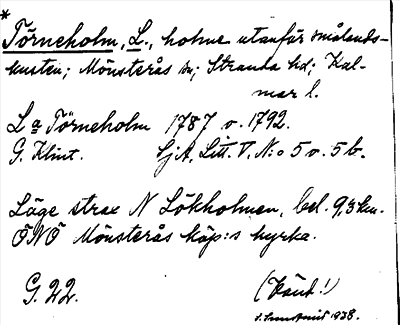 *
Törneholm, L., holme utanför smålands-
kusten; Mönsterås sn; Stranda hd; Kal-
mar l.
L a Törneholm 1787 o. 1792.
G. Klint. SjA, Litt. V, N:o 5 o. 5 b.
Läge strax N Lökholmen, bel. 9,3 km.
ÖNÖ Mönsterås köp:s kyrka.
G. 22. (Känd!)
1938.